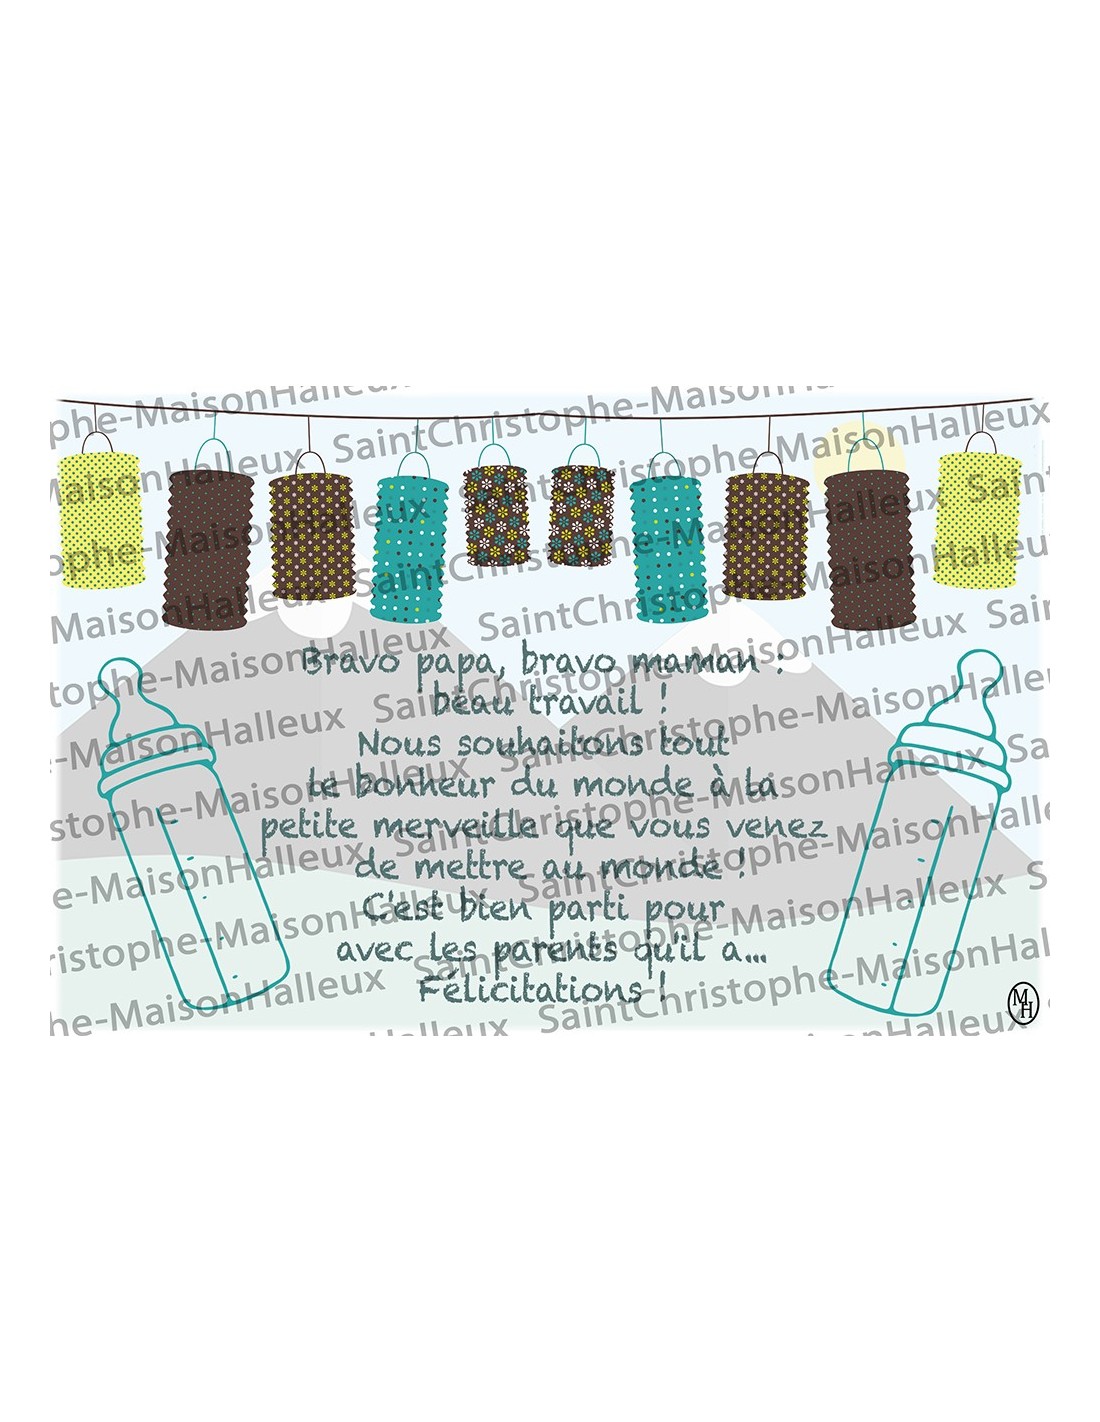 Bravo papa, bravo maman :
beau travail !
Nous souhaitons tout
le bonheur du monde à la
petite merveille que vous venez
de mettre au monde !
C'est bien parti pour
avec les parents qu'il a...
Félicitations !
MH
SaintChristophe-MaisonHalleux